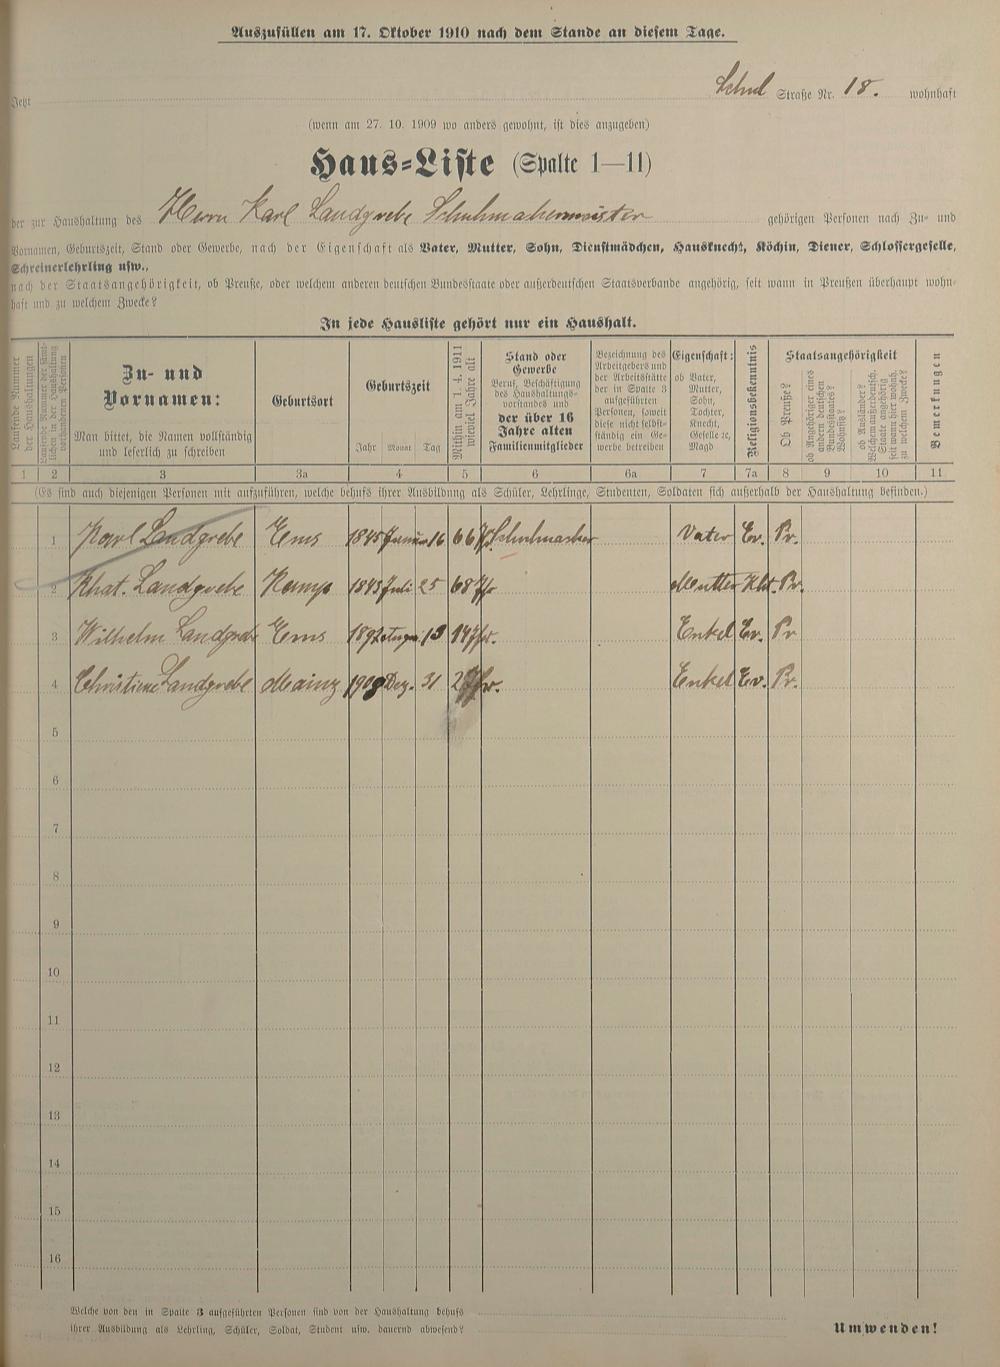 Auszufüllen am 17. Oktober 1910 nach dem Stande an diesem Tage.
Jetzt Schul Straße Nr. 18. wohnhaft
(wenn am 27. 10. 1909 wo anders gewohnt, ist dies anzugeben)
Haus-Liste (Spalte 1—11)
der zur Haushaltung des Herrn Karl Landgrebe Schuhmachermeister gehörigen Personen nach Zu- und
Vornamen, Geburtszeit, Stand oder Gewerbe, nach der Eigenschaft als Vater, Mutter, Sohn, Dienstmädchen, Hausknecht, Köchin, Diener, Schlossergeselle,
Schreinerlehrling usw.,
nach der Staatsangehörigkeit, ob Preuße, oder welchem anderen deutschen Bundesstaate oder außerdeutschen Staatsverbande angehörig, seit wann in Preußen überhaupt wohn-
haft und zu welchem Zwecke?
In jede Hausliste gehört nur ein Haushalt.
Laufende Nummer
der Haushaltungen
Laufende Nummer der sämt-
lichen in der Haushaltung
vorhandenen Personen
Zu- und
Vornamen:
Man bittet, die Namen vollständig
und leserlich zu schreiben
Geburtsort
Geburtszeit
Jahr Monat Tag
Mithin am 1. 4. 1911
wieviel Jahre alt
Stand oder
Gewerbe
Beruf, Beschäftigung
des Haushaltungs-
vorstandes und
der über 16
Jahre alten
Familienmitglieder
Bezeichnung des
Arbeitgebers und
der Arbeitsstätte
der in Spalte 3
aufgeführten
Personen, soweit
diese nicht selbst-
ständig ein Ge-
werbe betreiben
Eigenschaft:
ob Vater,
Mutter,
Sohn,
Tochter,
Knecht,
Geselle ꝛc,
Magd
Religionsbekenntnis
Staatsangehörigkeit
Ob Preuße?
ob Angehöriger eines
andern deutschen
Bundesstaates?
Wohnsitz?
ob Ausländer?
Welchem außerdeutsch.
Staate angehörig
seit wann hier wohnh.
zu welchem Zwecke?
Bemerkungen
1 2 3 3a 4 5 6 6a 7 7a 8 9 10 11
(Es sind auch diejenigen Personen mit aufzuführen, welche behufs ihrer Ausbildung als Schüler, Lehrlinge, Studenten, Soldaten sich außerhalb der Haushaltung befinden.)
1 Karl Landgrebe Ems 1845 16 66 Jr. Schuhmacher Vater Ev. Pr.
2 Khat. Landgrebe Kamp 1843 Juli 25 68 Jr Mutter Kht. Pr.
3 Wilhelm Landgrebe Ems 1892 13 Jr. Enkel Ev. Pr
4 Christiene Landgrebe Mainz Dez. 31 2 Jr. Enkel Ev. Pr.
5
6
7
8
9
10
11
12
13
14
15
16
Welche von den in Spalte 3 aufgeführten Personen sind von der Haushaltung behufs
ihrer Ausbildung als Lehrling, Schüler, Soldat, Student usw. dauernd abwesend?
Umwenden!